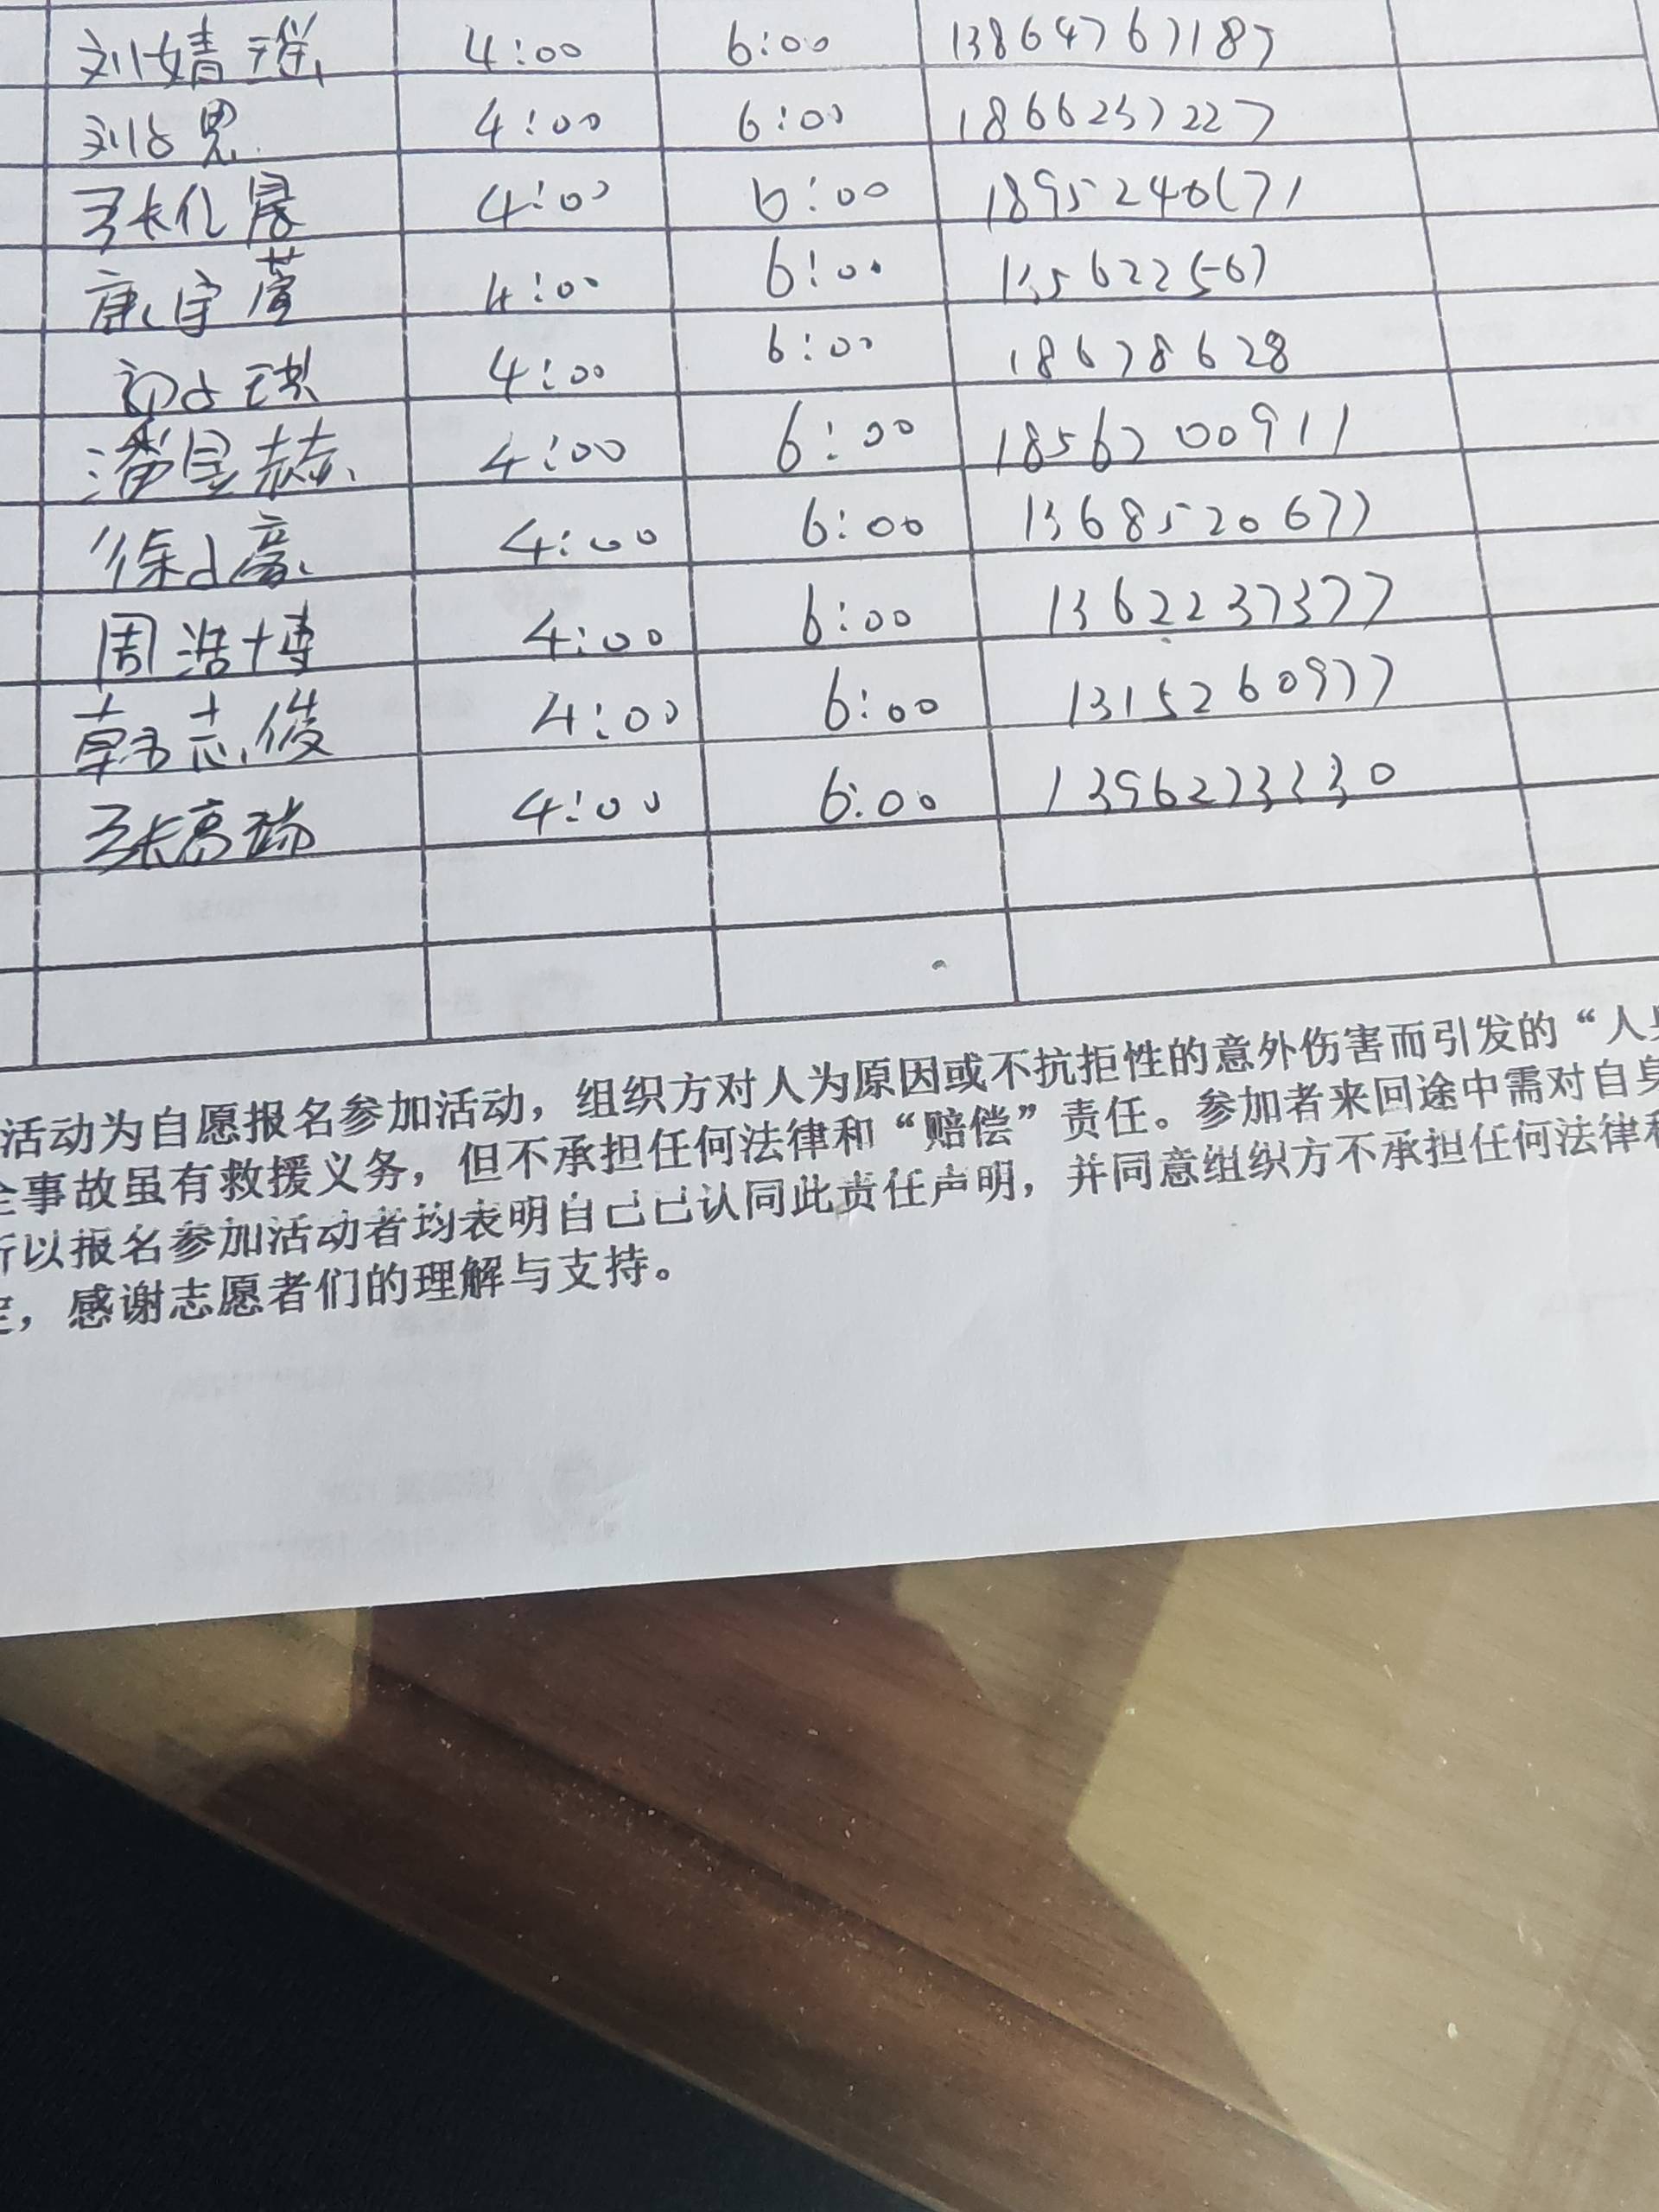 刘婧瑶 4:00 6:00 13864767187
刘思 4:00 6:00 1866237227
张化晨 4:00 6:00 1895240671
康宇萱 4:00 6:00
琪 4:00 6:00 18678628
潘昱赫 4:00 6:00 1856700911
徐豪 4:00 6:00 1368520677
周浩博 4:00 6:00 1362237377
韩志俊 4:00 6:00 1315260977
张高瑞 4:00 6:00
活动为自愿报名参加活动，组织方对人为原因或不抗拒性的意外伤害而引发的“人
事故虽有救援义务，但不承担任何法律和“赔偿”责任。参加者来回途中需对自身
以报名参加活动者均表明自己已认同此责任声明，并同意组织方不承担任何法律和
，感谢志愿者们的理解与支持。